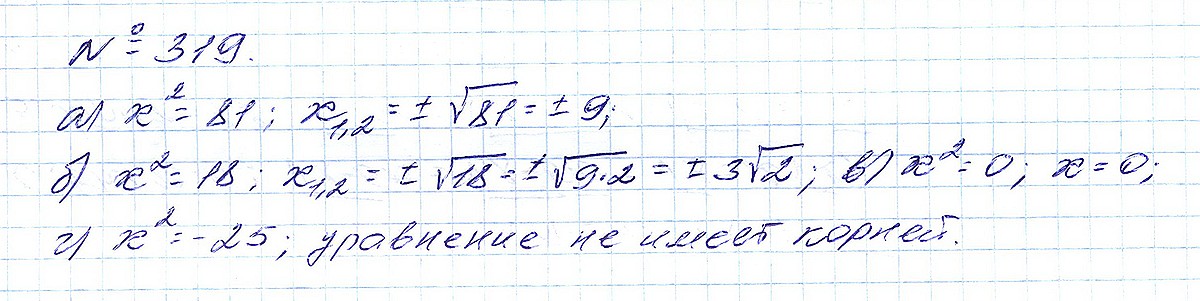 № 319.
а) x² = 81; x₁,₂ = ± √81 = ± 9;
б) x² = 18; x₁,₂ = ± √18 = ± √9·2 = ± 3√2; в) x² = 0; x = 0;
г) x² = -25; уравнение не имеет корней.